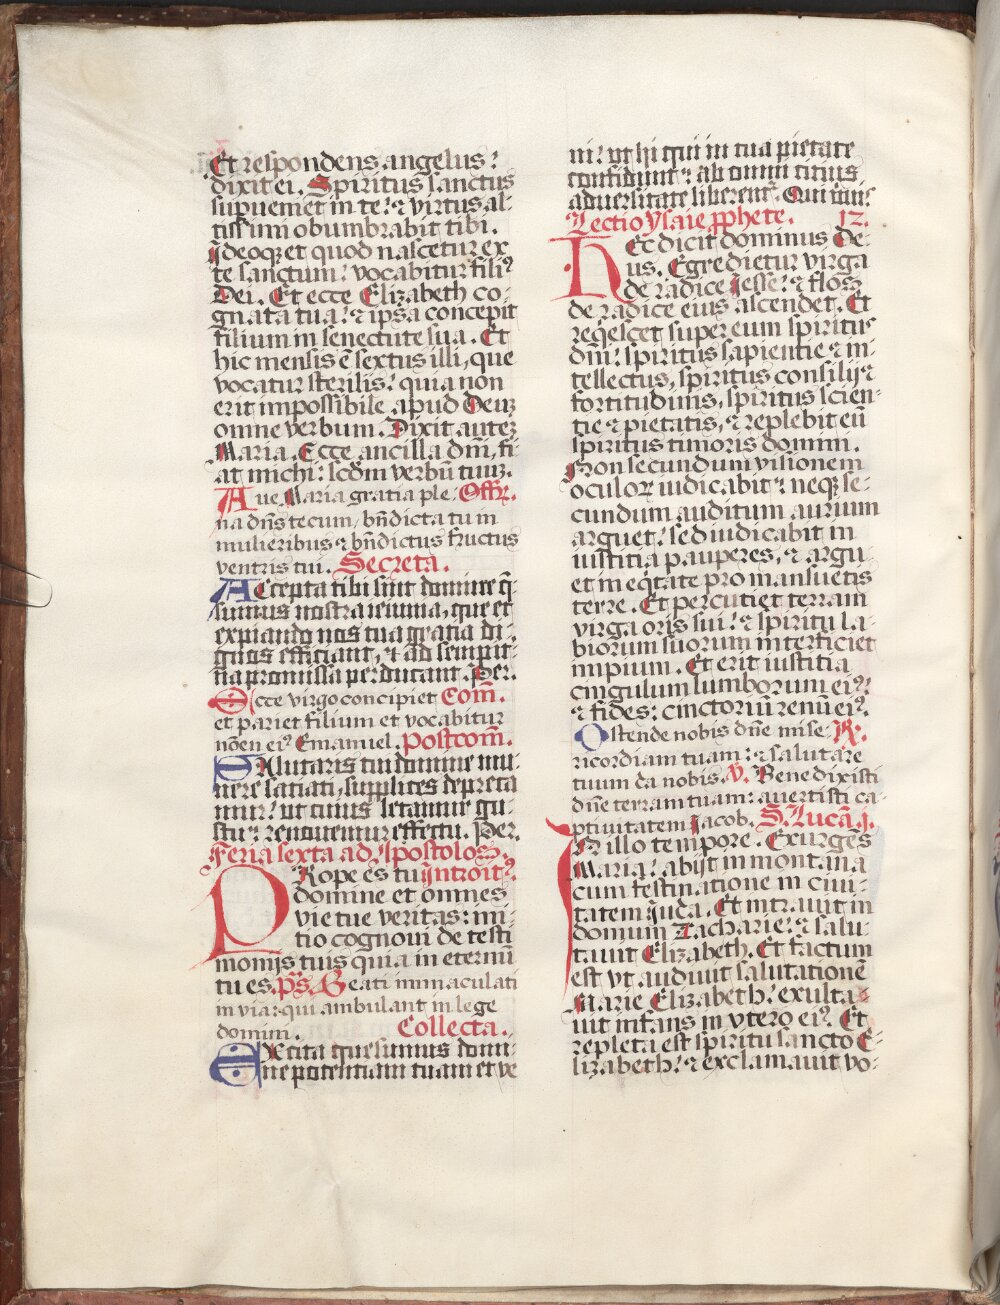 Et respondens angelus:
dixit ei. Spiritus sanctus
superueniet in te: ⁊ virtus al-
tissimi obumbrabit tibi.
Ideoqꝫ et quod nascetur ex
te sanctum: vocabitur filiꝰ
Dei. Et ecce Elizabeth co-
gnata tua: ⁊ ipsa concepit
filium in senectute sua. Et
hic mensis ē sextus illi, que
vocatur sterilis: quia non
erit impossibile apud Deuꝫ
omne verbum. Dixit auteꝫ
Maria. Ecce ancilla dn̄i, fi-
at michi: scd̄m verbū tuuꝫ.
Aue Maria gratia ple- Offr.
na dn̄s tecum, bn̄dicta tu in
mulieribus ⁊ bn̄dictus fructus
ventris tui. Secreta.
Accepta tibi sint domine q̄-
sumus nostra ieiunia, que et
expiando nos tua gratia di-
gnos efficiant, ⁊ ad sempit-
na promissa perducant. Per.
Ecce virgo concipiet Com̄.
et pariet filium et vocabitur
nōen eiꝰ Emanuel. Postcom̄.
Salutaris tui domine mu-
nere satiati, supplices depreca
mur: ut cuius letamur gu-
stu: renouemur effectu. Per.
Feria sexta ad Apostolos.
Prope es tu Introitꝰ.
domine et omnes
vie tue veritas: ini-
tio cognoui de testi
monijs tuis quia in eternū
tu es. p̄s. Beati inmaculati
in via: qui ambulant in lege
domini. Collecta.
Excita quesumus domi-
ne potentiam tuam et ve
ni: vt hi qui in tua pietate
confidunt: ab omni citius
aduersitate liberent᷑. Qui viuis
Lectio ysaie ꝓphete. 12.
Hec dicit dominus De-
us. Egredietur virga
de radice Iesse: ⁊ flos
de radice eius ascendet. Et
reqescet super eum spiritus
dn̄i: spiritus sapientie ⁊ in-
tellectus, spiritus consilij ⁊
fortitudinis, spiritus scien-
tie ⁊ pietatis, ⁊ replebit eū
spiritus timoris domini.
Non secundum visionem
oculoꝝ iudicabit: neqꝫ se-
cundum auditum aurium
arguet: sed iudicabit in
iustitia pauperes, ⁊ argu-
et in eq̄tate pro mansuetis
terre. Et percutiet terram
virga oris sui: ⁊ spiritu la-
biorum suorum interficiet
impium. Et erit iustitia
cingulum lumborum eiꝰ:
⁊ fides: cinctoriū renū eiꝰ.
Ostende nobis dn̄e mise- R.
ricordiam tuam: ⁊ salutare
tuum da nobis. V. Benedixisti
dn̄e terram tuam: auertisti ca-
ptiuitatem Jacob. S. Lucā .j.
In illo tempore. Exurgēs
Maria: abijt in montana
cum festinatione in ciui-
tatem Juda. Et intrauit in
domum Zacharie: ⁊ salu-
tauit Elizabeth. Et factum
est vt audiuit salutationē
Marie Elizabeth: exulta-
uit infans in vtero eiꝰ. Et
repleta est spiritu sancto E-
lizabeth: ⁊ exclamauit vo-